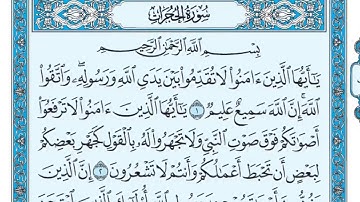 سُورَةُ الْحُجُرَاتِ
بِسْمِ اللَّهِ الرَّحْمَٰنِ الرَّحِيمِ
يَٰٓأَيُّهَا الَّذِينَ ءَامَنُوا لَا تُقَدِّمُوا بَيْنَ يَدَيِ اللَّهِ وَرَسُولِهِۦ ۖ وَاتَّقُوا
اللَّهَ ۚ إِنَّ اللَّهَ سَمِيعٌ عَلِيمٌ ١ يَٰٓأَيُّهَا الَّذِينَ ءَامَنُوا لَا تَرْفَعُوٓا
أَصْوَٰتَكُمْ فَوْقَ صَوْتِ النَّبِيِّ وَلَا تَجْهَرُوا لَهُۥ بِالْقَوْلِ كَجَهْرِ بَعْضِكُمْ
لِبَعْضٍ أَن تَحْبَطَ أَعْمَٰلُكُمْ وَأَنتُمْ لَا تَشْعُرُونَ ٢ إِنَّ الَّذِينَ